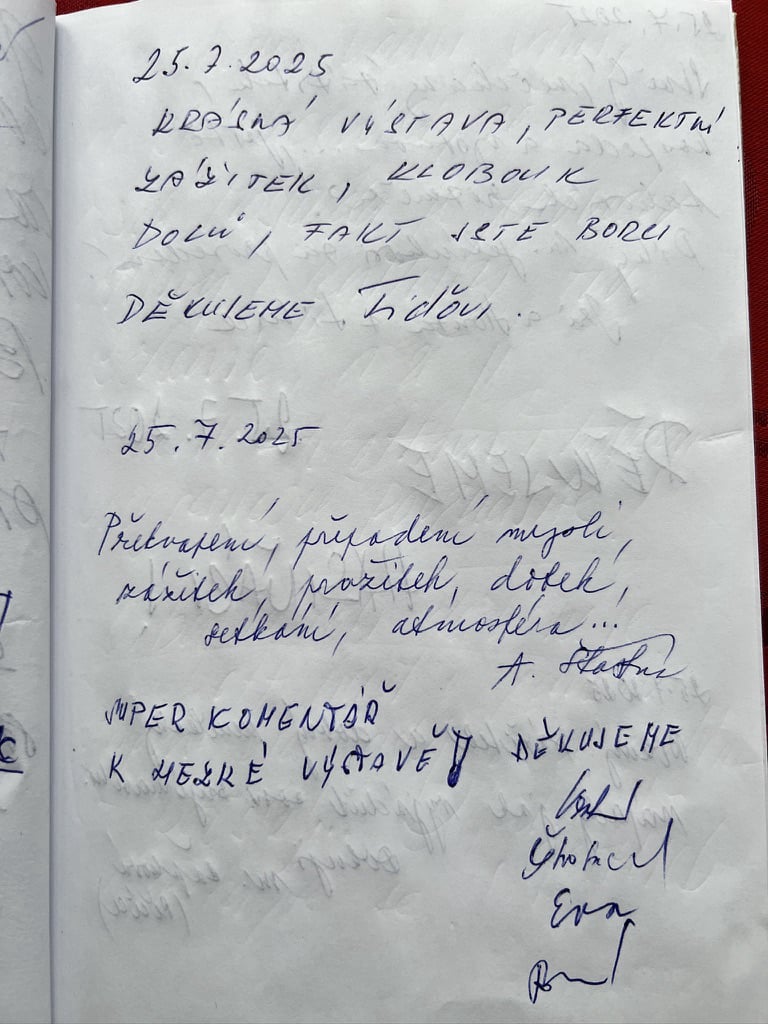 25.7.2025
KRÁSNÁ VÝSTAVA, PERFEKTNÍ
ZÁŽITEK, KLOBOUK
DOLŮ, FAKT JSTE BORCI
DĚKUJEME
25.7.2025
Překvapení, přepadení myslí,
zážitek, prožitek, dotek,
setkání, atmosféra...
A. Šťastná
SUPER KOMENTÁŘ
K HEZKÉ VÝSTAVĚ! DĚKUJEME
Eva